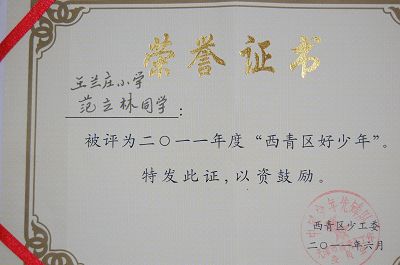 荣誉证书
王兰庄小学
范立林同学：
被评为二〇一一年度“西青区好少年”。
特发此证，以资鼓励。
西青区少工委
二〇一一年六月